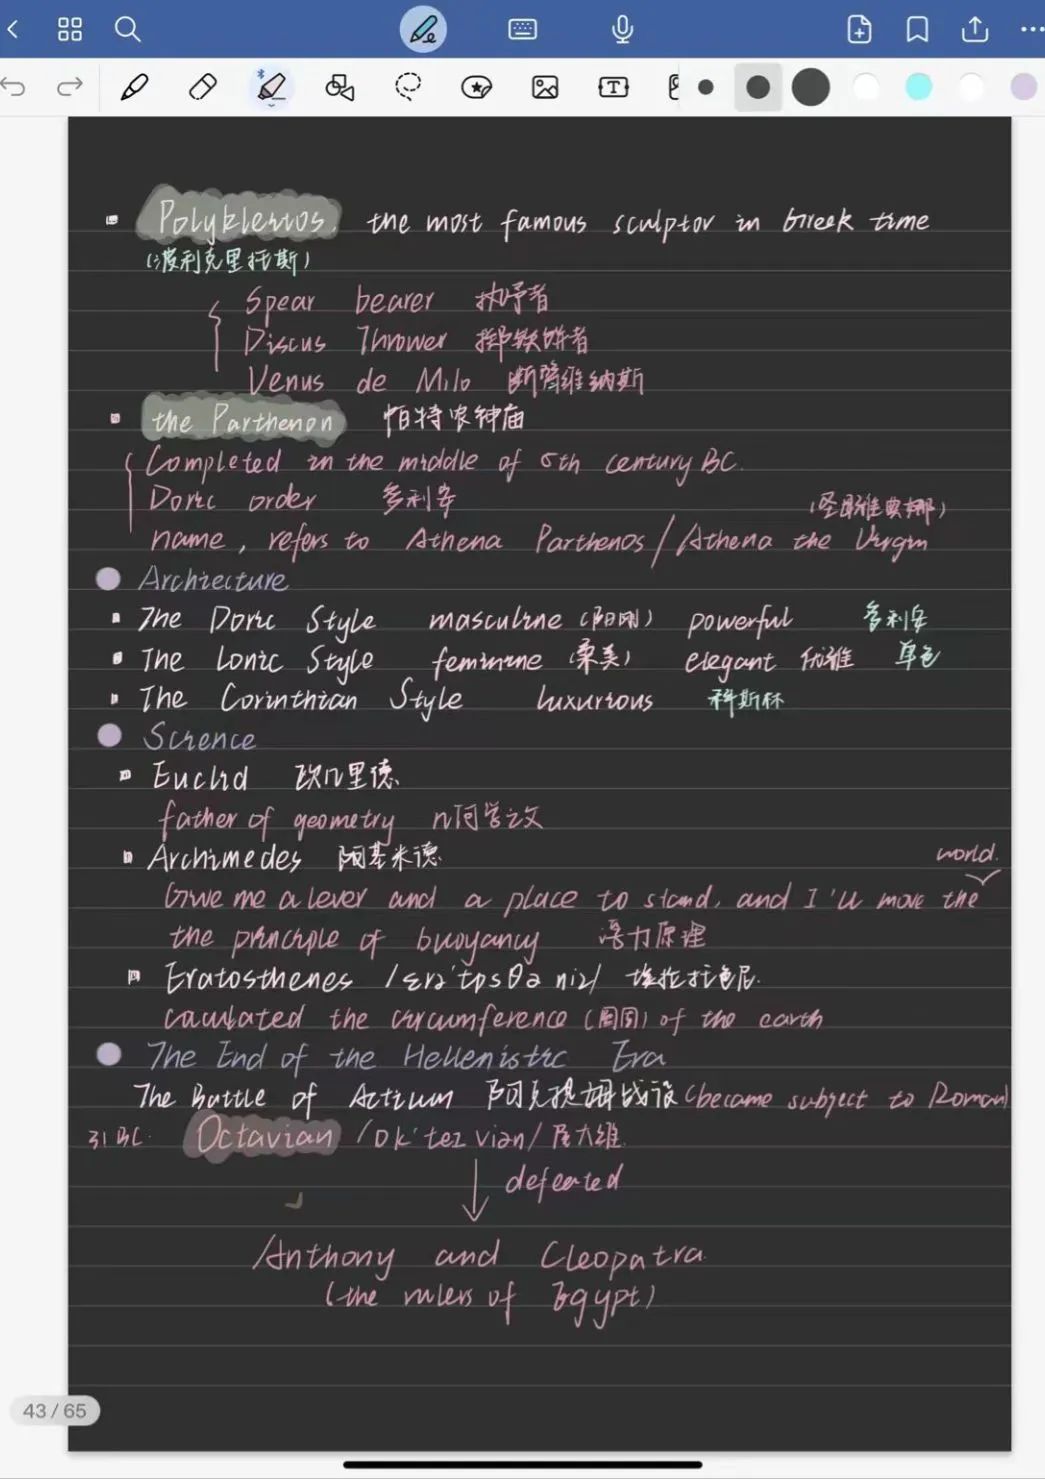 Polykleitos, the most famous sculptor in Greek time
(波利克里托斯)
Spear bearer 执矛者
Discus Thrower 掷铁饼者
Venus de Milo 断臂维纳斯
the Parthenon 帕特农神庙
Completed in the middle of 5th century BC.
Doric order 多利安
(圣雅典娜)
name, refers to Athena Parthenos / Athena the Virgin
Archiecture
The Doric Style masculine (阳刚) powerful 多利安
The Lonic Style feminine (柔美) elegant 优雅
The Corinthian Style luxurious 科斯林
Science
Euclid 欧几里德
father of geometry 几何学之父
Archimedes 阿基米德
world.
Give me a lever and a place to stand, and I'll move the
the principle of buoyancy 浮力原理
Eratosthenes /ɛrə'tɒsθə niz/ 埃拉托色尼
caculated the circumference (周围) of the earth
The End of the Hellenistic Era
The Battle of Actium 阿克提姆战役 (became subject to Roman)
31 BC. Octavian /ɒk'teɪ viən/ 屋大维
defeated
Anthony and Cleopatra
(the rulers of Egypt)
43 / 65